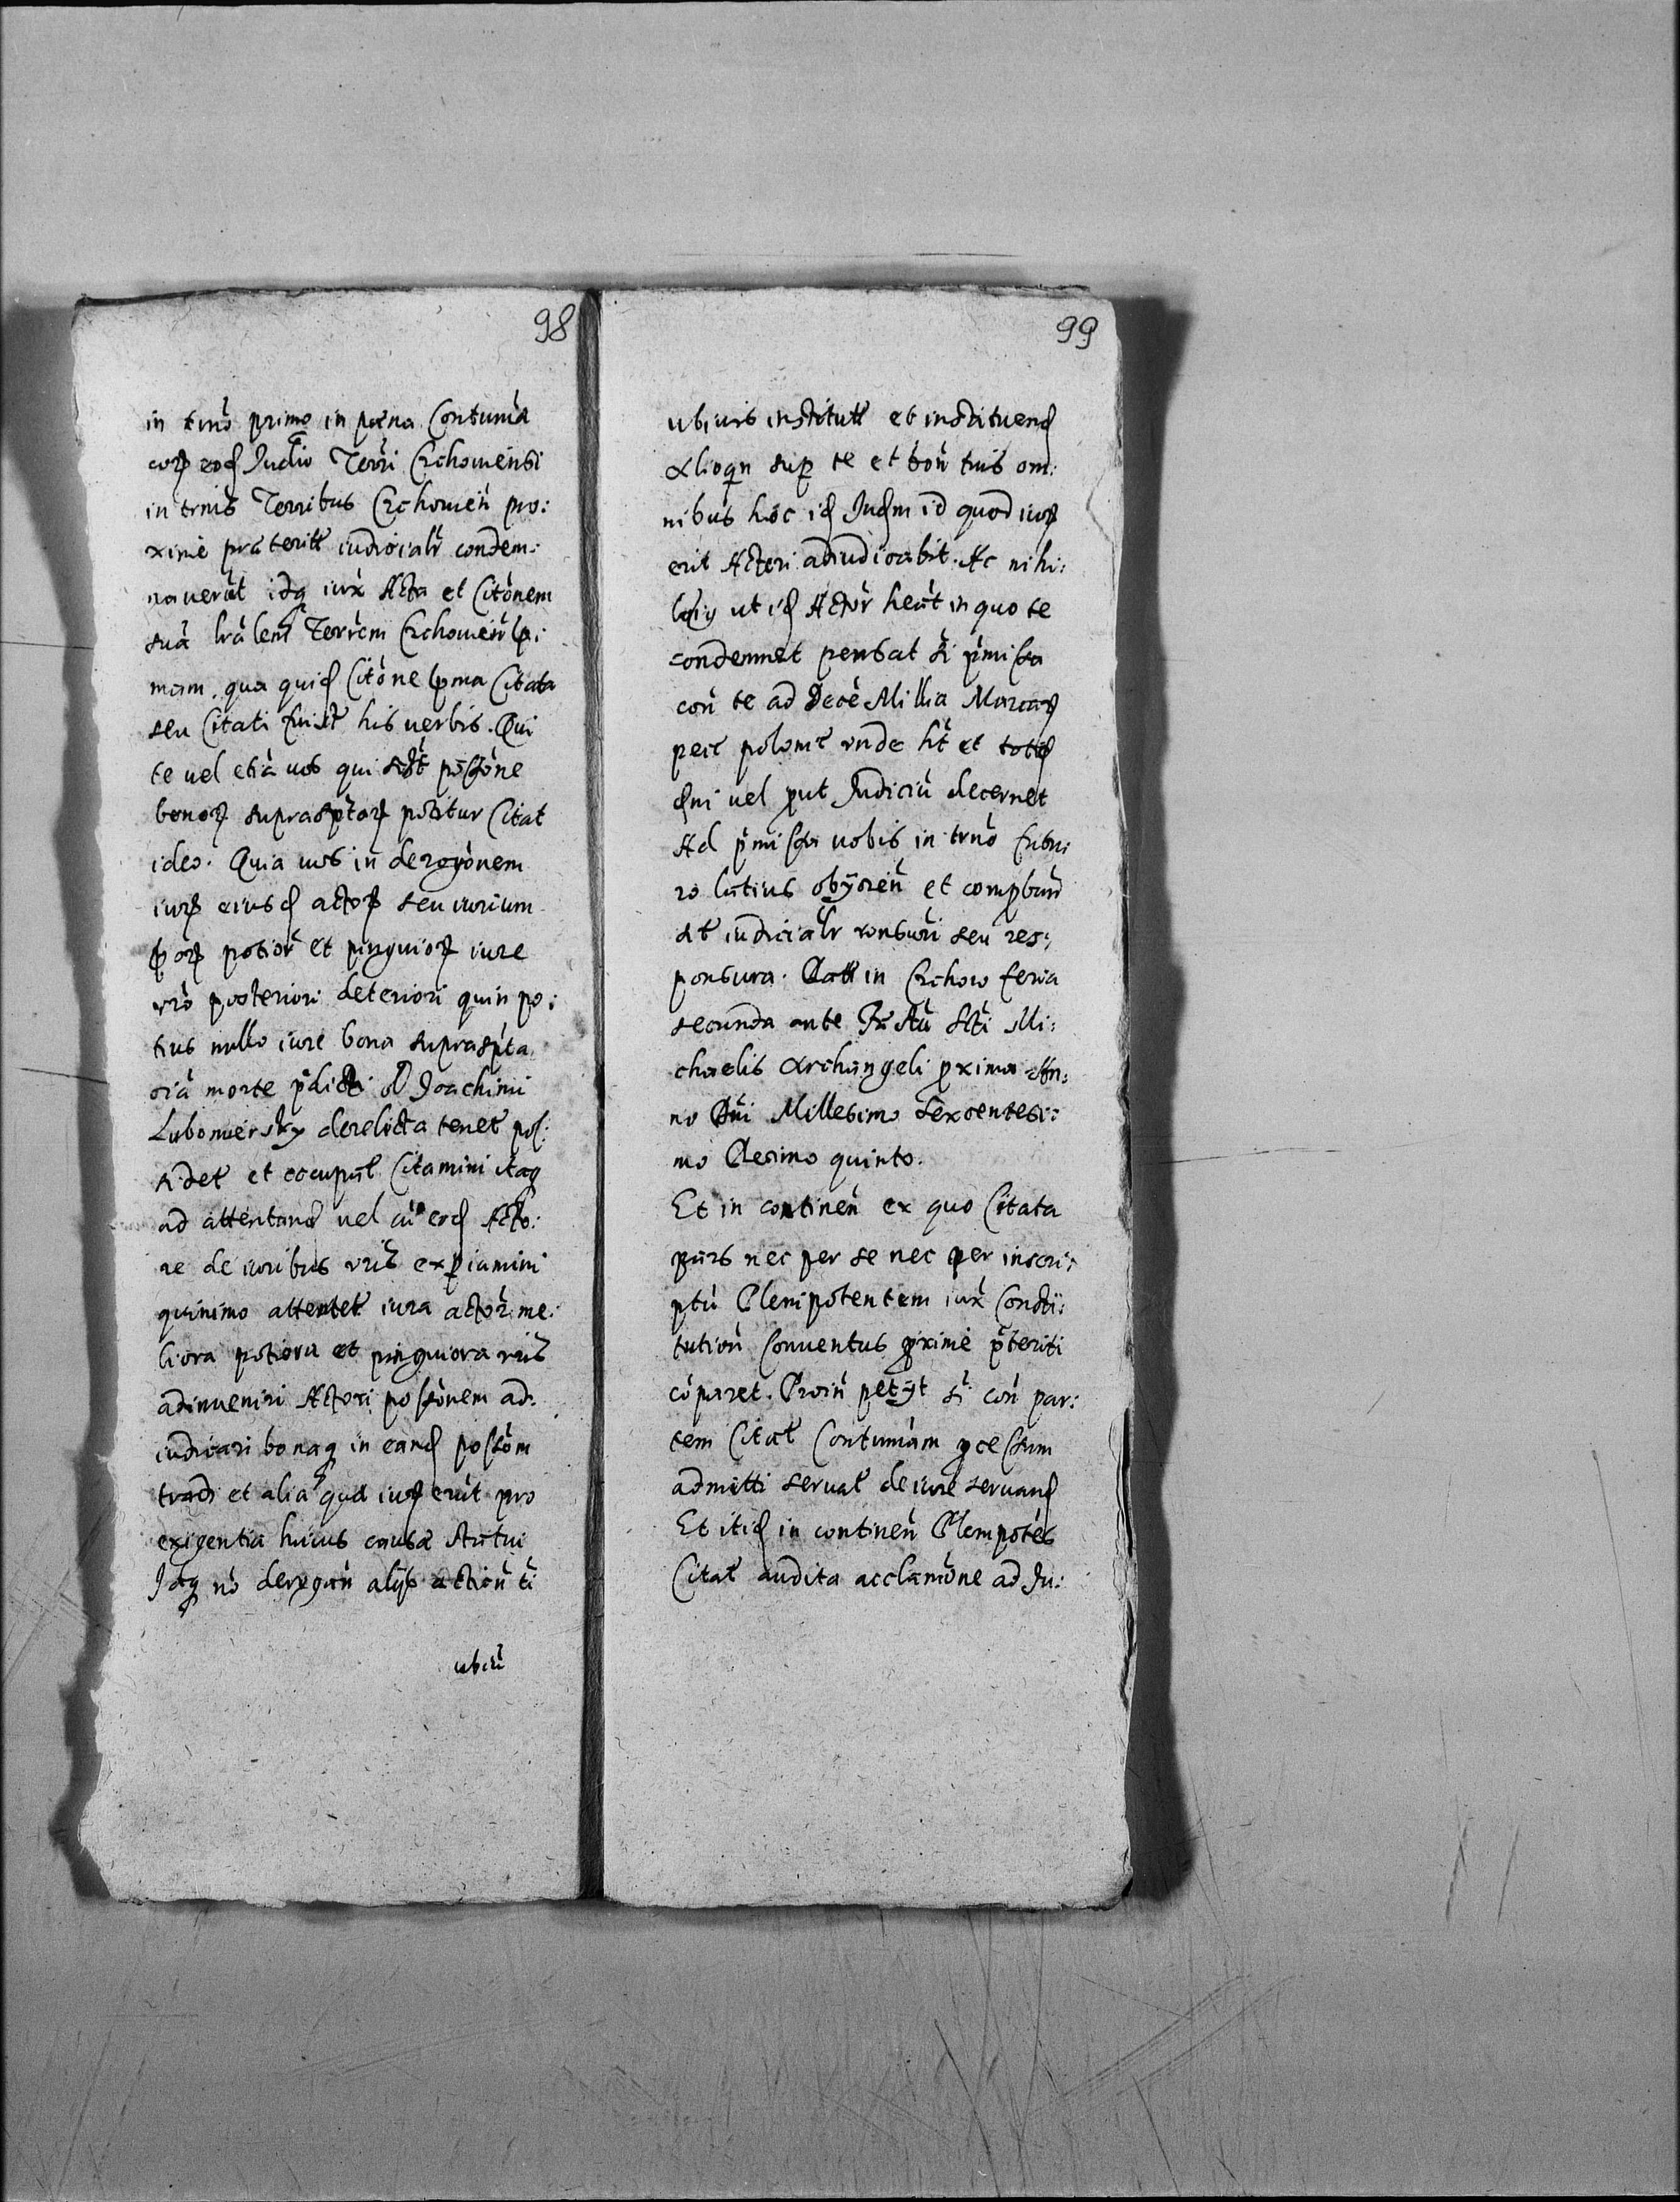 98
in trnō primo in pæna Contumā
corʒ eodʒ Judīo Terrī Czchomensi
in trnis Terribus Czchomeñ pro:
xime præteritʒ iudicialr condem:
naverūt idqʒ iuxʒ Acta et Citōnem
suā lrālem Terrēm Czchomeñ
mam. qua quidʒ Citōne Citata
seu Citati his verbis. Qui
te vel etiā vos qui possōne
bonorʒ suprasptorʒ potitur Citat
ideo. Quia vos in derogōnem
iurʒ eiusdʒ actorʒ seu iurium
potiorʒ et pinguiorʒ iure
vrō posteriori deteriori quin po:
tius nullo iure bona suprasp̄ta
morte p̄dicti Joachimi
Lubomiersky derelicta tenetʒ pos:
sidetʒ et occupatʒ Citamini itaqʒ
ad attentandʒ vel cū eodʒ Acto:
re de iuribus vrīs expiamini
quinimo attentetʒ iura actorʒ me:
liora potiora et pinguiora vrīs
adinveniri Actori possōnem ad:
iudicari bonaqʒ in eandʒ possōm
tradi et alia quæ iurʒ erūt pro
exigentia huius causæ statui
Idqʒ nō derogañ alijs actioñ tī
ubiū
99
ubivis institutʒ et instituendʒ
Alioqn sup te et boñ tuis om:
nibus hōc idʒ Judm id quod iurʒ
erit Actori adiudicabit. Ac nihi:
ut idʒ Actor heāt in quo te
condemnet pensat sī p̄missa
coñ te ad Decē Millia Marcarʒ
pec polonic unde ht et totidʒ
dni vel prout Judiciū decernet
Ad p̄missa vobis in trnō
ro latius et
iudicialr seu res:
ponsura. Datʒ in Czchow feria
secunda ante Fæstū Scti Mi:
chaelis Archangeli pxima An:
no Dni Millesimo Sexcentesi:
mo Decimo quinto.
Et in contineñ ex quo Citata
pars nec per se nec per inscri:
ptū Plenipotentem iuxʒ Consti:
tutioñ Conventus pxime p̄teriti
cōparet. Proiñ petijt sī coñ par:
tem Citatʒ Contumām pcessum
admitti servatʒ de iure servandʒ
Et itidʒ in contineñ Plenipotēs
Citatʒ audita acclamōne ad Ju: